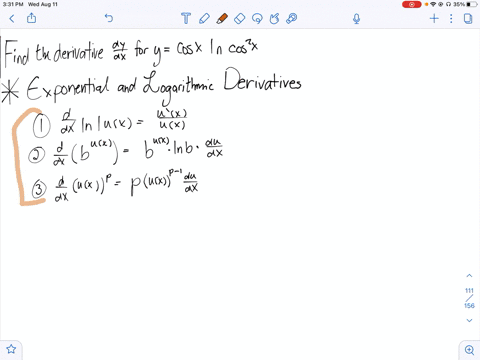 3:31 PM Wed Aug 11
35%
Find the derivative dy/dx for y = cosx ln cos²x
* Exponential and Logarithmic Derivatives
① d/dx ln|u(x) = u'(x)/u(x)
② d/dx (b^u(x)) = b^u(x) · ln b · du/dx
③ d/dx (u(x))^p = p(u(x))^p-1 du/dx
111
/
156